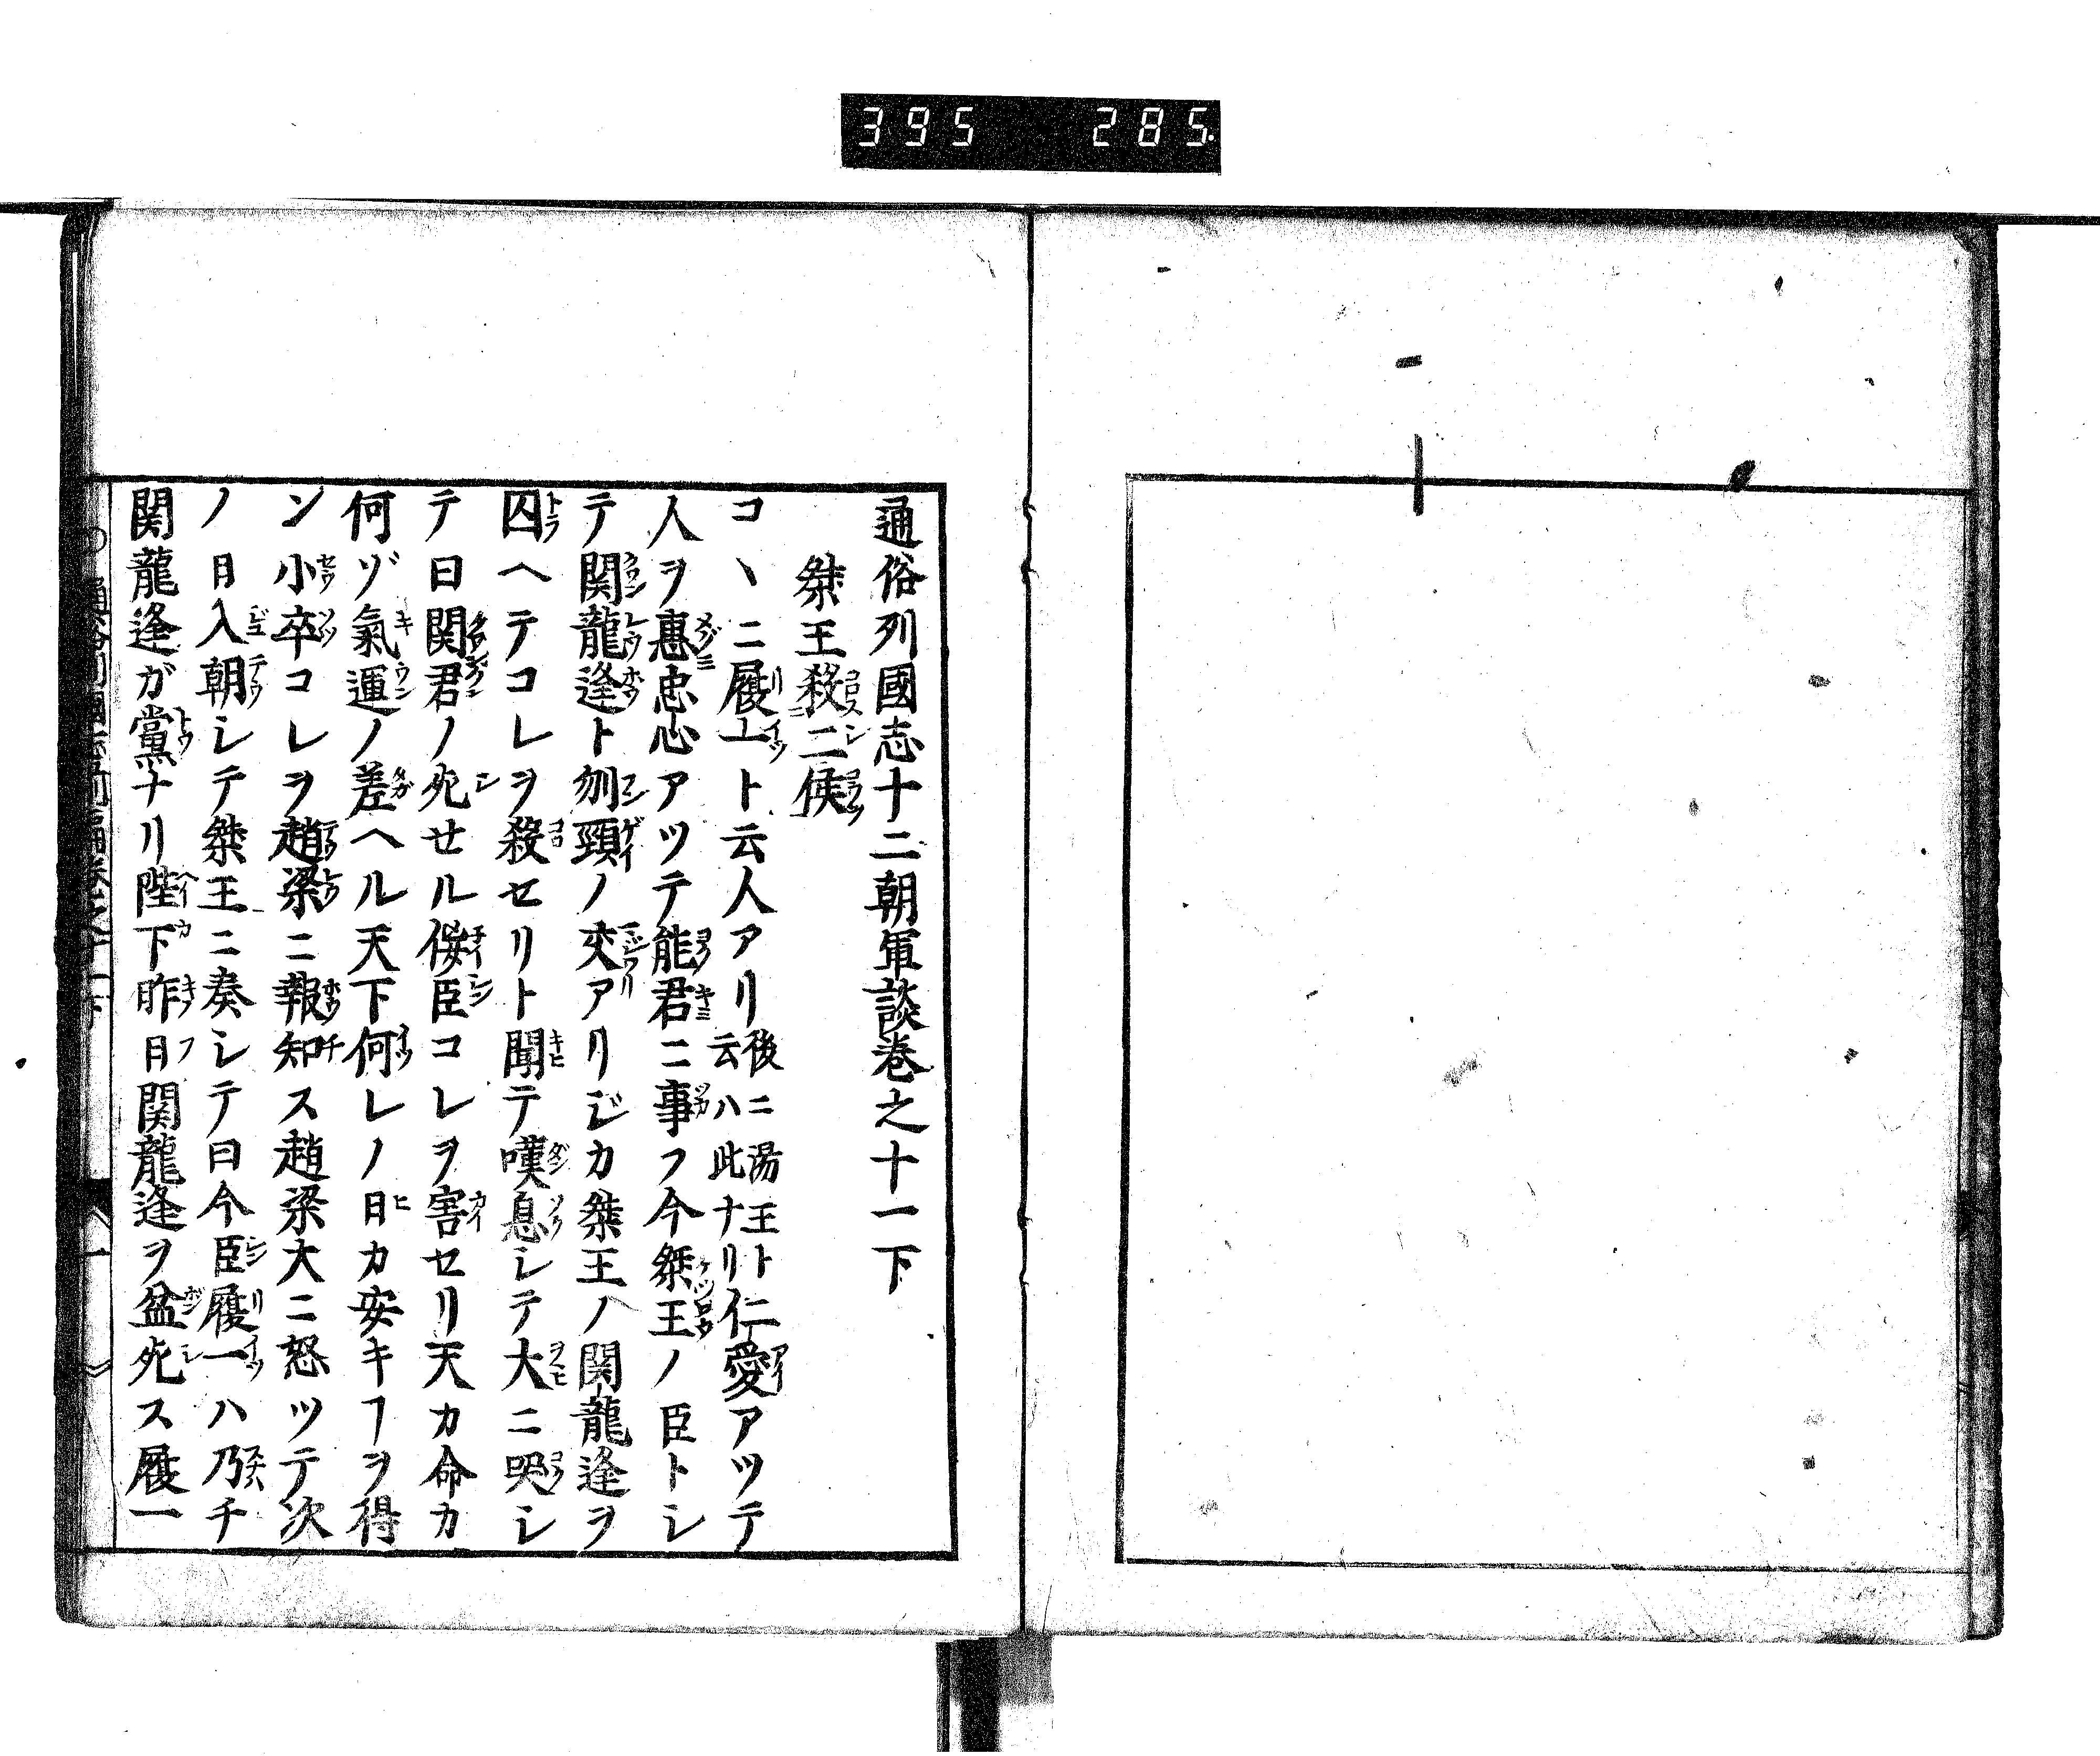 395 285
通俗列國志十二朝軍談巻之十一下
桀王殺二侯
コヽニ履一ト云人アリ後ニ湯王ト云ハ此ナリ仁愛アツテ
人ヲ惠忠心アツテ能君ニ事フ今桀王ノ臣トシ
テ関龍逢ト刎頸ノ交アリシカ桀王ノ関龍逢ヲ
囚ヘテコレヲ殺セリト聞テ嘆息シテ大ニ哭シ
テ曰関君ノ死せル侫臣コレヲ害セリ天カ命カ
何ヅ氣運ノ差ヘル天下何レノ日カ安キヿヲ得
ン小卒コレヲ趙梁ニ報知ス趙梁大ニ怒ツテ次
ノ日入朝シテ桀王ニ奏シテ曰今臣履一ハ乃チ
関龍逢が黨ナリ陛下昨日関龍逢ヲ盆死ス履一